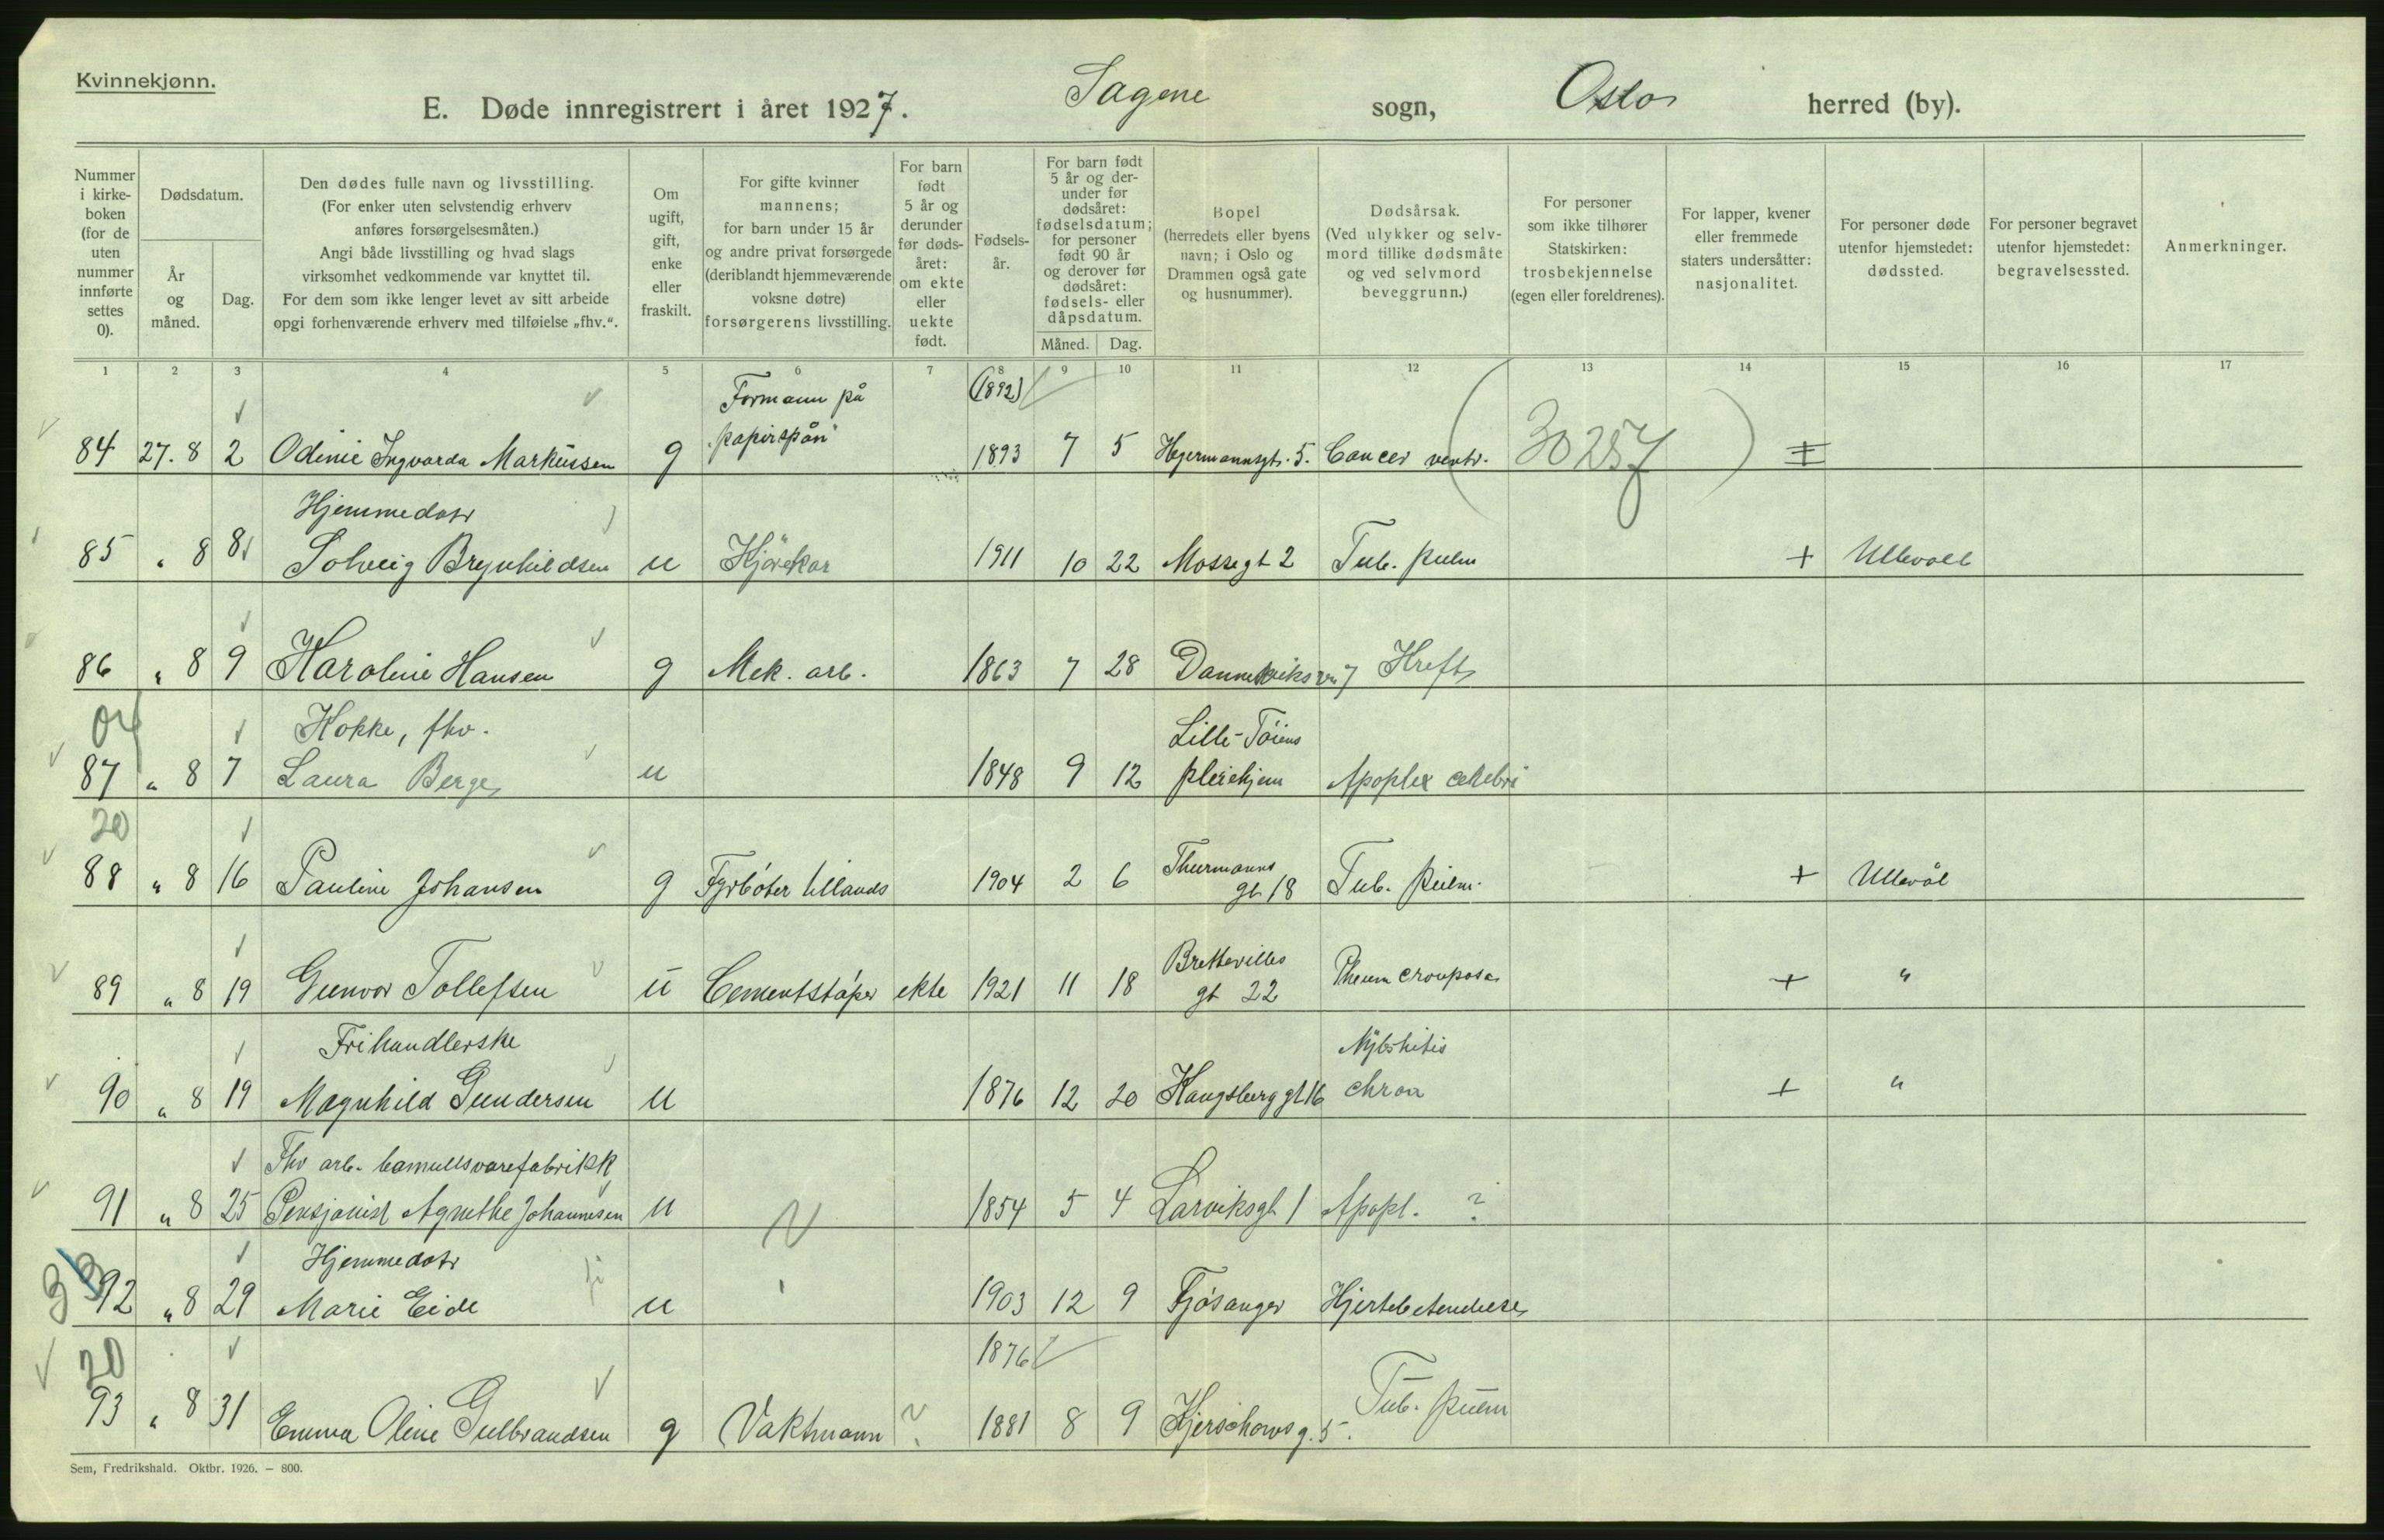 Kvinnekjønn.
E. Døde innregistrert i året 1927. Sagene sogn, Oslo herred (by).
Nummer i kirke- boken (for de uten nummer innførte settes 0).
Dødsdatum.
År og måned.
Dag.
Den dødes fulle navn og livsstilling. (For enker uten selvstendig erhverv anføres forsørgelsesmåten.) Angi både livsstilling og hvad slags virksomhet vedkommende var knyttet til. For dem som ikke lenger levet av sitt arbeide opgi forhenværende erhverv med tilføielse „fhv.“.
Om ugift, gift, enke eller fraskilt.
For gifte kvinner mannens; for barn under 15 år og andre privat forsørgede (deriblandt hjemmeværende voksne døtre) forsørgerens livsstilling.
For barn født 5 år og derunder før døds- året: om ekte eller uekte født.
Fødsels- år.
For barn født 5 år og der- under før dødsåret: fødselsdatum; for personer født 90 år og derover før dødsåret: fødsels- eller dåpsdatum.
Måned. Dag.
Bopel (herredets eller byens navn; i Oslo og Drammen også gate og husnummer).
Dødsårsak. (Ved ulykker og selv- mord tillike dødsmåte og ved selvmord beveggrunn.)
For personer som ikke tilhører Statskirken: trosbekjennelse (egen eller foreldrenes).
For lapper, kvener eller fremmede staters undersåtter: nasjonalitet.
For personer døde utenfor hjemstedet: dødssted.
For personer begravet utenfor hjemstedet: begravelsessted.
Anmerkninger.
1 2 3 4 5 6 7 8 9 10 11 12 13 14 15 16 17
Formann på (1892)
84 27. 8 2 Odinie Ingvarda Markussen g "papirspån" 1893 7 5 Hegermannsgt. 5. Cancer ventr. (30257) +
Hjemmedatr
85 " 8 8 Solveig Brynhildsen u Kjørekar 1911 10 22 Mossegt 2 Tub. pulm + Ullevåll
86 " 8 9 Karoline Hansen g Mek. arb. 1863 7 28 Danneviksvn 7 Kreft
04 Kokke, fhv. Lille-Tøiens
87 " 8 7 Laura Berge u 1848 9 12 pleiehjem Apoplex celebri
20 Thurmanns
88 " 8 16 Pauline Johansen g Fyrbøter tillands 1904 2 6 gt 18 Tub. pulm. + Ullevål
Brettevilles
89 " 8 19 Gunvor Tollefsen u Cementstøper ekte 1921 11 18 gt 22 Pneum crouposa + "
Frihandlerske
90 " 8 19 Magnhild Gundersen u 1876 12 20 Kongsberggt 16 chron + "
Fhv arb. bomullsvarefabrikk
91 " 8 25 Pensjonist Agnethe Johannesen u 1854 5 4 Larviksgt 1 Apopl. ?
33 Hjemmedatr
92 " 8 29 Marie Eide u 1903 12 9 Fjøsanger Hjertebetendelse
20 1876
93 " 8 31 Emma Oline Gulbrandsen g Vaktmann ? 1881 8 9 Hjerschowsg. 5. Tub. pulm
Sem, Fredrikshald. Oktbr. 1926. — 800.